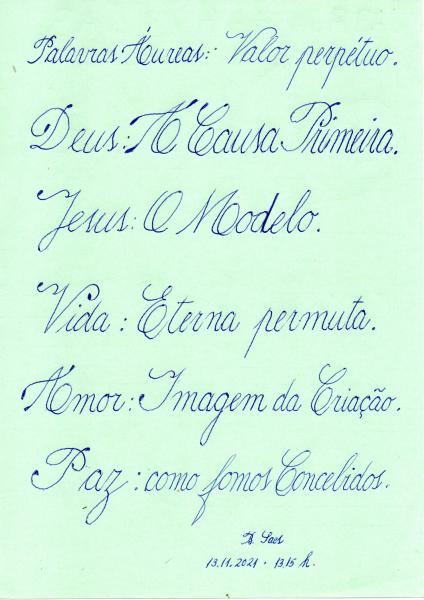 Palavras Áureas: Valor perpétuo.
Deus: A Causa Primeira.
Jesus: O Modelo.
Vida: Eterna permuta.
Amor: Imagem da Criação.
Paz: como fomos Concebidos.
13.11.2021 · 13,15 h.